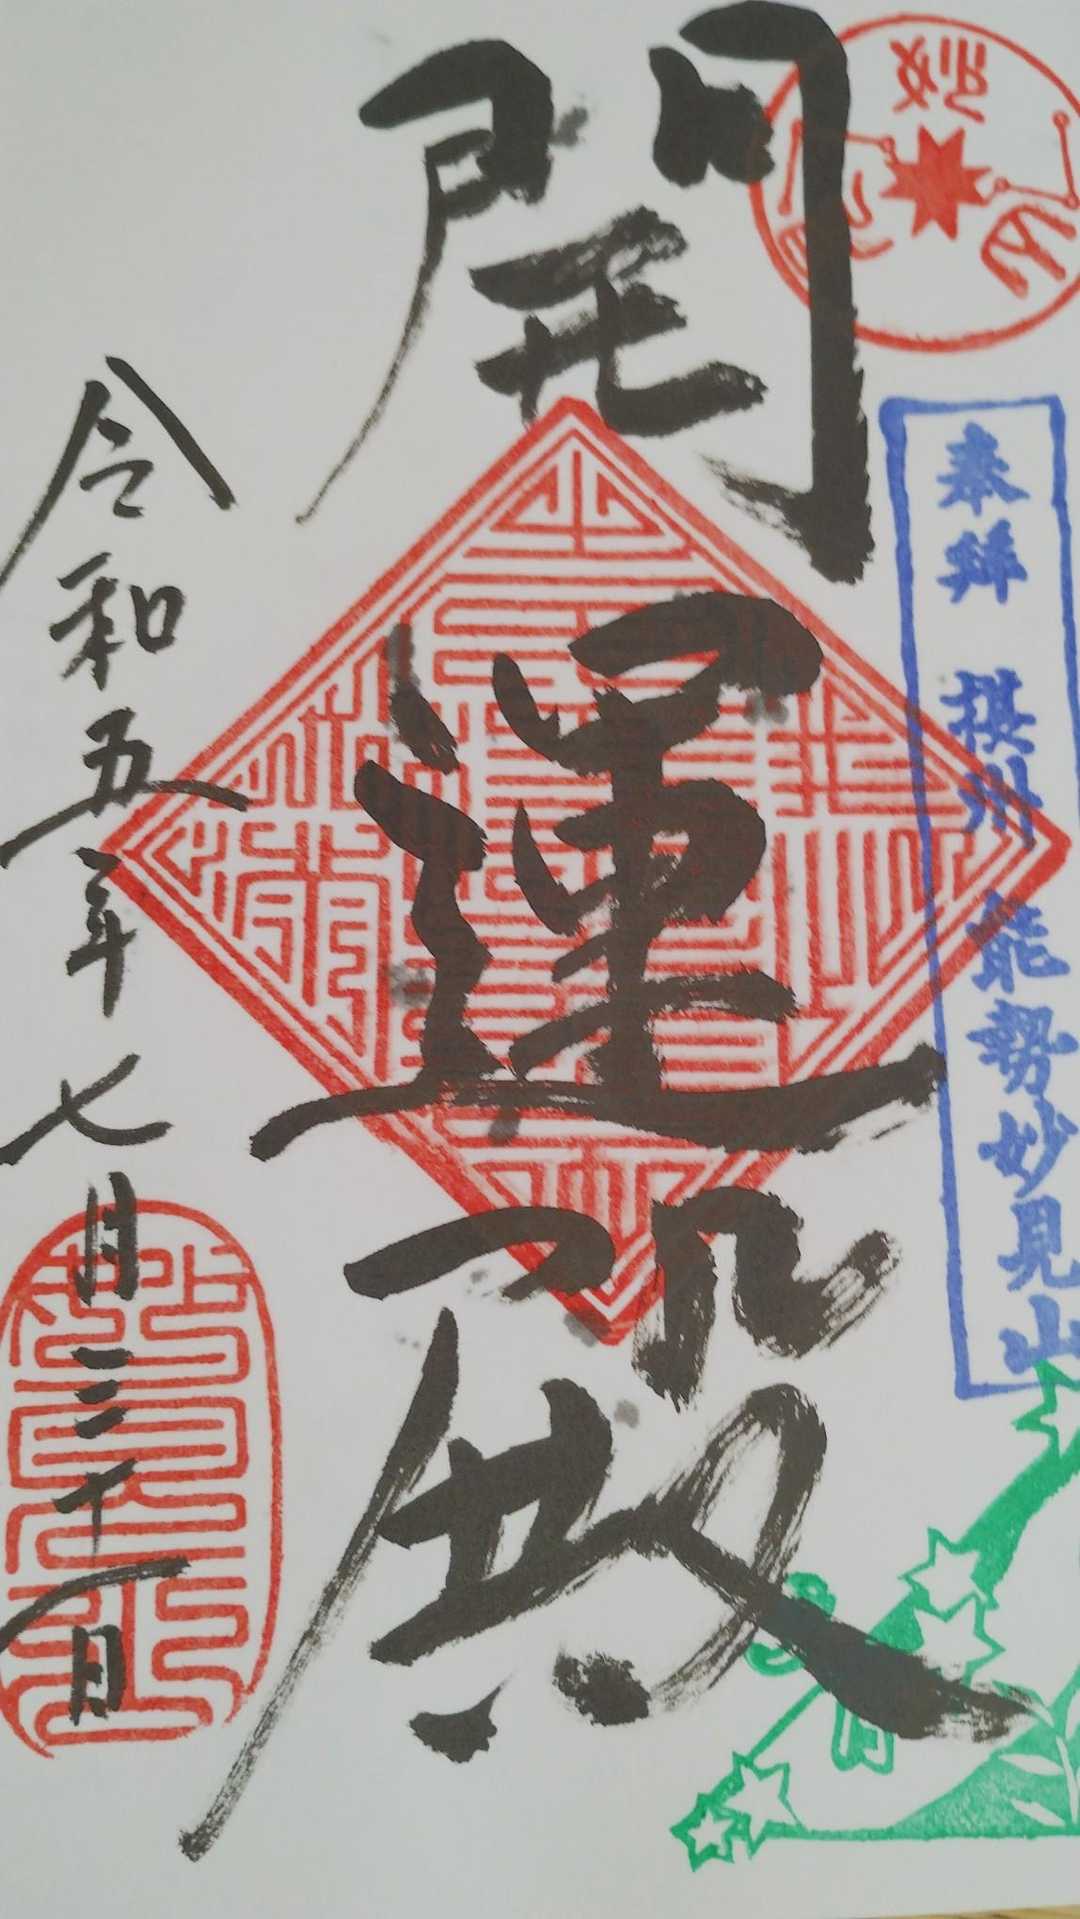 奉拜 摂州 能勢妙見山
開運殿
令和五年七月三十一日